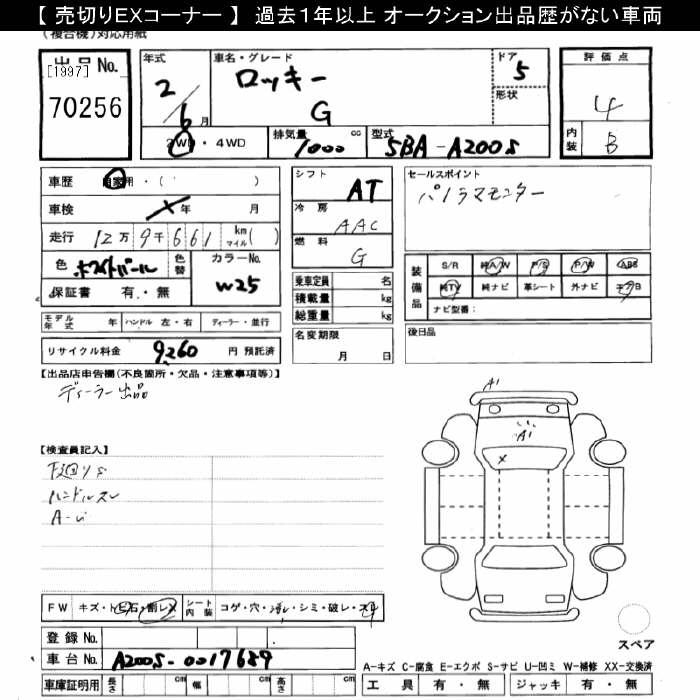 【 売切りEXコーナー 】 過去１年以上 オークション出品歴がない車両
(複合機)対応用紙
出品 No.
[1997]
70256
年式
2/6月
車名・グレード
ロッキー
G
ドア
5
形状
評価点
4
内装
B
2WD・4WD
排気量
1000 cc
型式
5BA-A200S
車歴 自家用・( )
車検 年 月
走行 12万9千661 km マイル( )
色 ホワイトパール 色替 カラーNo.
W25
保証書 有・無
シフト AT
冷房 AAC
燃料 G
乗車定員 名
積載量 kg
総重量 kg
名変期限
月 日
セールスポイント
パノラマモニター
装備品
S/R 純A/W P/S P/W ABS
純TV 純ナビ 革シート 外ナビ エアB
ナビ型番：
後日品
モデル年式 年 ハンドル 左・右 ディーラー・並行
リサイクル料金 9260 円 預託済
【出品店申告欄(不良箇所・欠品・注意事項等)】
ディーラー出品
【検査員記入】
下廻りS
ハンドルスレ
A1
A1
X
FW キズ・ト石・割レX シート内装 コゲ・穴・・シミ・破レ・スレ
登録 No.
車台 No. A200S-0017689
車庫証明用 長さ cm 幅 cm 高さ cm
スペア
A-キズ C-腐食 E-エクボ S-サビ U-凹ミ W-補修 XX-交換済
工具 有・無 ジャッキ 有・無